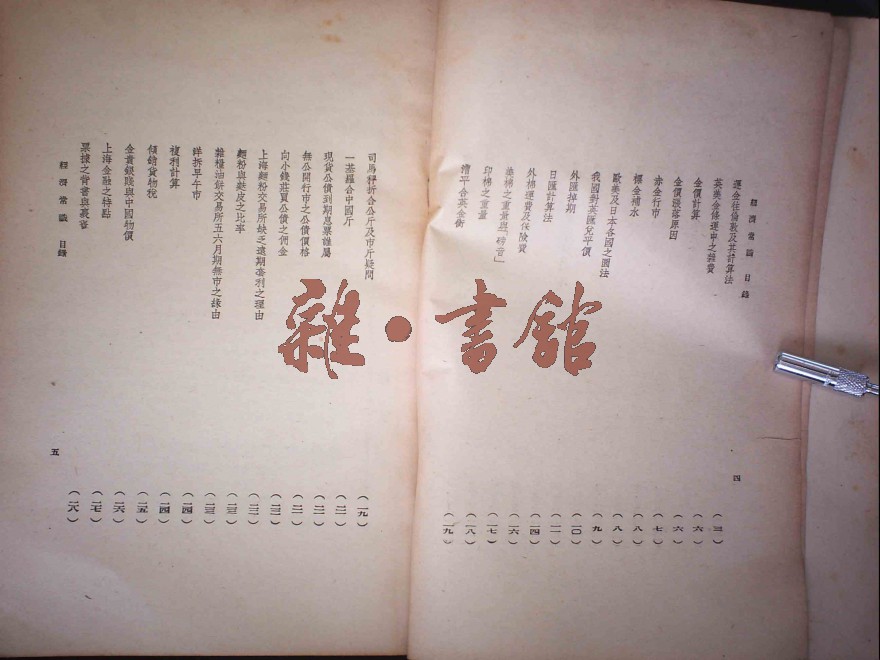 經濟常識 目錄 四
運金往倫敦及其計算法 (三)
英美金條運申之雜費 (六)
金價計算 (六)
金價漲落原因 (七)
赤金行市 (八)
標金補水 (八)
歐美及日本各國之圜法 (九)
我國對英匯兌平價 (一〇)
外匯掉期 (一一)
日匯計算法 (一四)
外棉運費及保險費 (一六)
美棉之重量與「磅音」 (一七)
印棉之重量 (一八)
漕平合英金衡 (一九)
司馬秤折合公斤及市斤疑問 (一九)
一基羅合中國斤 (二一)
現貨公債到期息票誰屬 (二一)
無公開行市之公債價格 (二一)
向小錢莊買公債之佣金 (二二)
上海麵粉交易所缺乏遠期套利之理由 (二二)
麵粉與麩皮之比率 (二三)
雜糧油餅交易所五六月期無市之緣由 (二三)
洋拆早午市 (二四)
複利計算 (二四)
傾銷貨物稅 (二五)
金貴銀賤與中國物價 (二六)
上海金融之特點 (二七)
票據之背書與裏書 (二八)
經濟常識 目錄 五
雜·書館